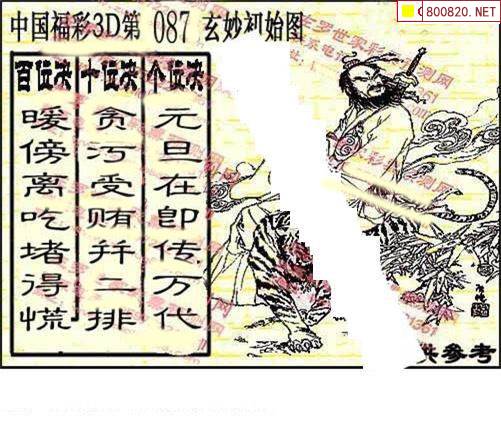 800820.NET
中国福彩3D第 087 玄妙初始图
百位决 十位决 个位决
暖傍离吃堵得慌
贪污受贿并二排
元旦在即传万代
供参考